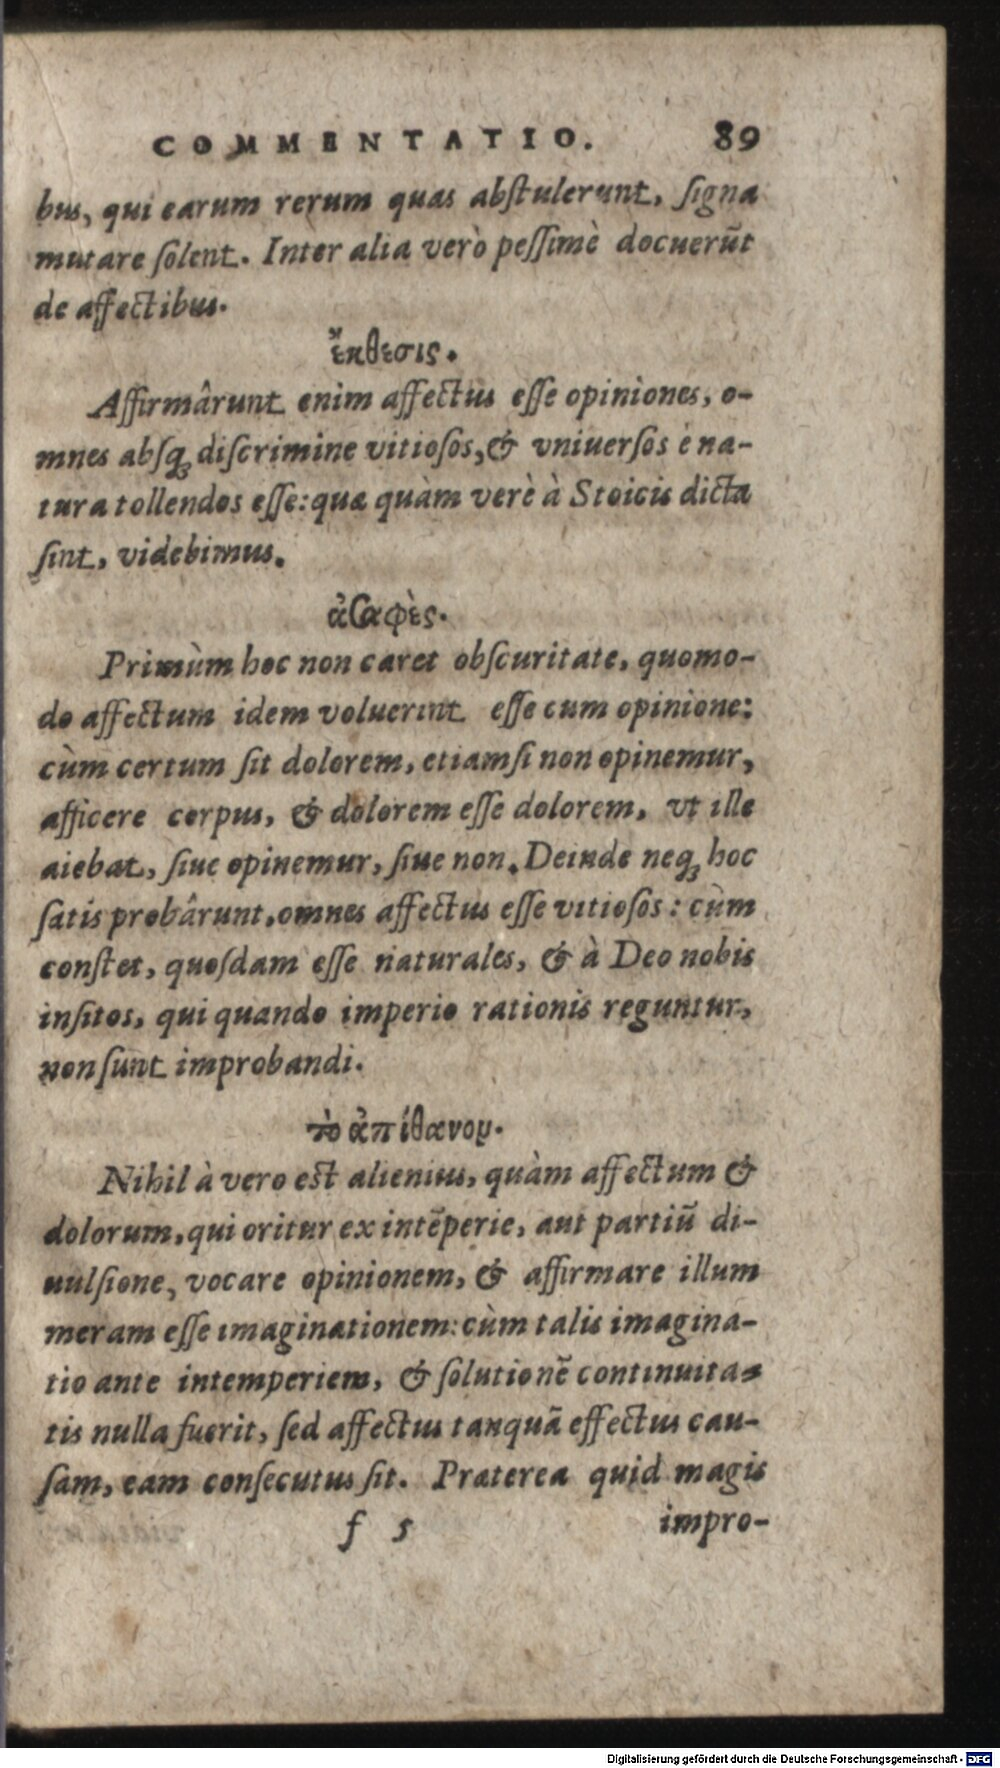 COMMENTATIO. 89
bus, qui earum rerum quas abſtulerunt, ſigna
mutare ſolent. Inter alia verò peſſimè docuerũt
de affectibus.
ἔκθεσις.
Affirmârunt enim affectus eſſe opiniones, o-
mnes abſq; diſcrimine vitioſos, & vniuerſos è na-
tura tollendos eſſe: quæ quàm verè à Stoicis dicta
ſint, videbimus.
ἀσαφὲς.
Primùm hoc non caret obſcuritate, quomo-
do affectum idem voluerint eſſe cum opinione:
cùm certum ſit dolorem, etiamſi non opinemur,
afficere corpus, & dolorem eſſe dolorem, vt ille
aiebat, ſiue opinemur, ſiue non. Deinde neq; hoc
ſatis probârunt, omnes affectus eſſe vitioſos: cùm
conſtet, quoſdam eſſe naturales, & à Deo nobis
inſitos, qui quando imperio rationis reguntur,
non ſunt improbandi.
τὸ ἀπίθανον.
Nihil à vero eſt alienius, quàm affectum &
dolorum, qui oritur ex intẽperie, aut partiũ di-
uulſione, vocare opinionem, & affirmare illum
meram eſſe imaginationem: cùm talis imagina-
tio ante intemperiem, & ſolutionẽ continuita-
tis nulla fuerit, ſed affectus tanquã effectus cau-
ſam, eam conſecutus ſit. Præterea quid magis
f 5 impro-
Digitalisierung gefördert durch die Deutsche Forschungsgemeinschaft - DFG